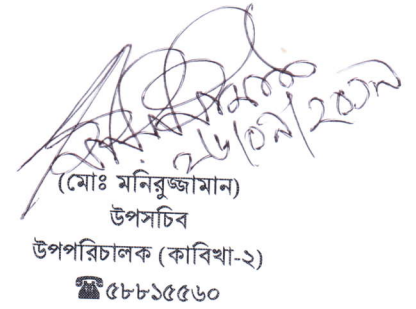 (মোঃ মনিরুজ্জামান)
উপসচিব
উপপরিচালক (কাবিখা-২)
☎৫৮৮১৫৫৬০